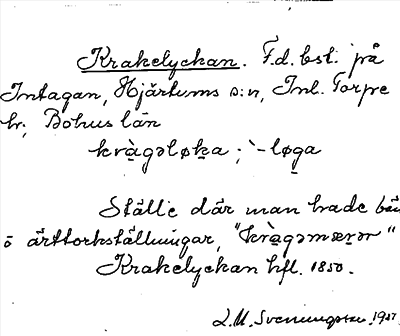 Krakelyckan. F.d. bst. på
Intagan, Hjärtums s:n, Inl. Torpe
hr, Bohus län
kràgələka; `-løga
Ställe där man hade bå
ö ärttorkställningar, "kràgəmærər"
Krakelyckan hfl. 1850.
L.M. Svenungsson 1951